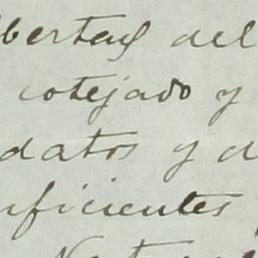 libertad del
cotejado y
datos y d
uficientes